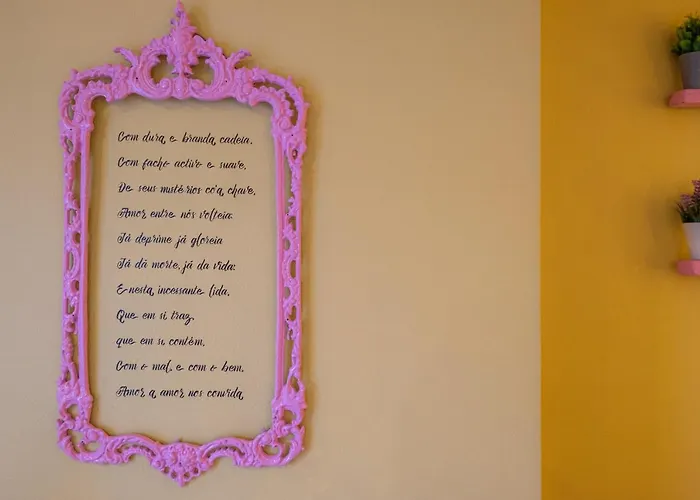 Com dura, e branda, cadeia,
Com facho activo e suave,
De seus mistérios co'a, chave,
Amor entre nós volteia:
Já deprime já gloreia
Já dá morte, já da vida:
E nesta, incessante lida,
Que em si traz,
que em si contém,
Com o mal, e com o bem,
Amor a, amor nos convida,